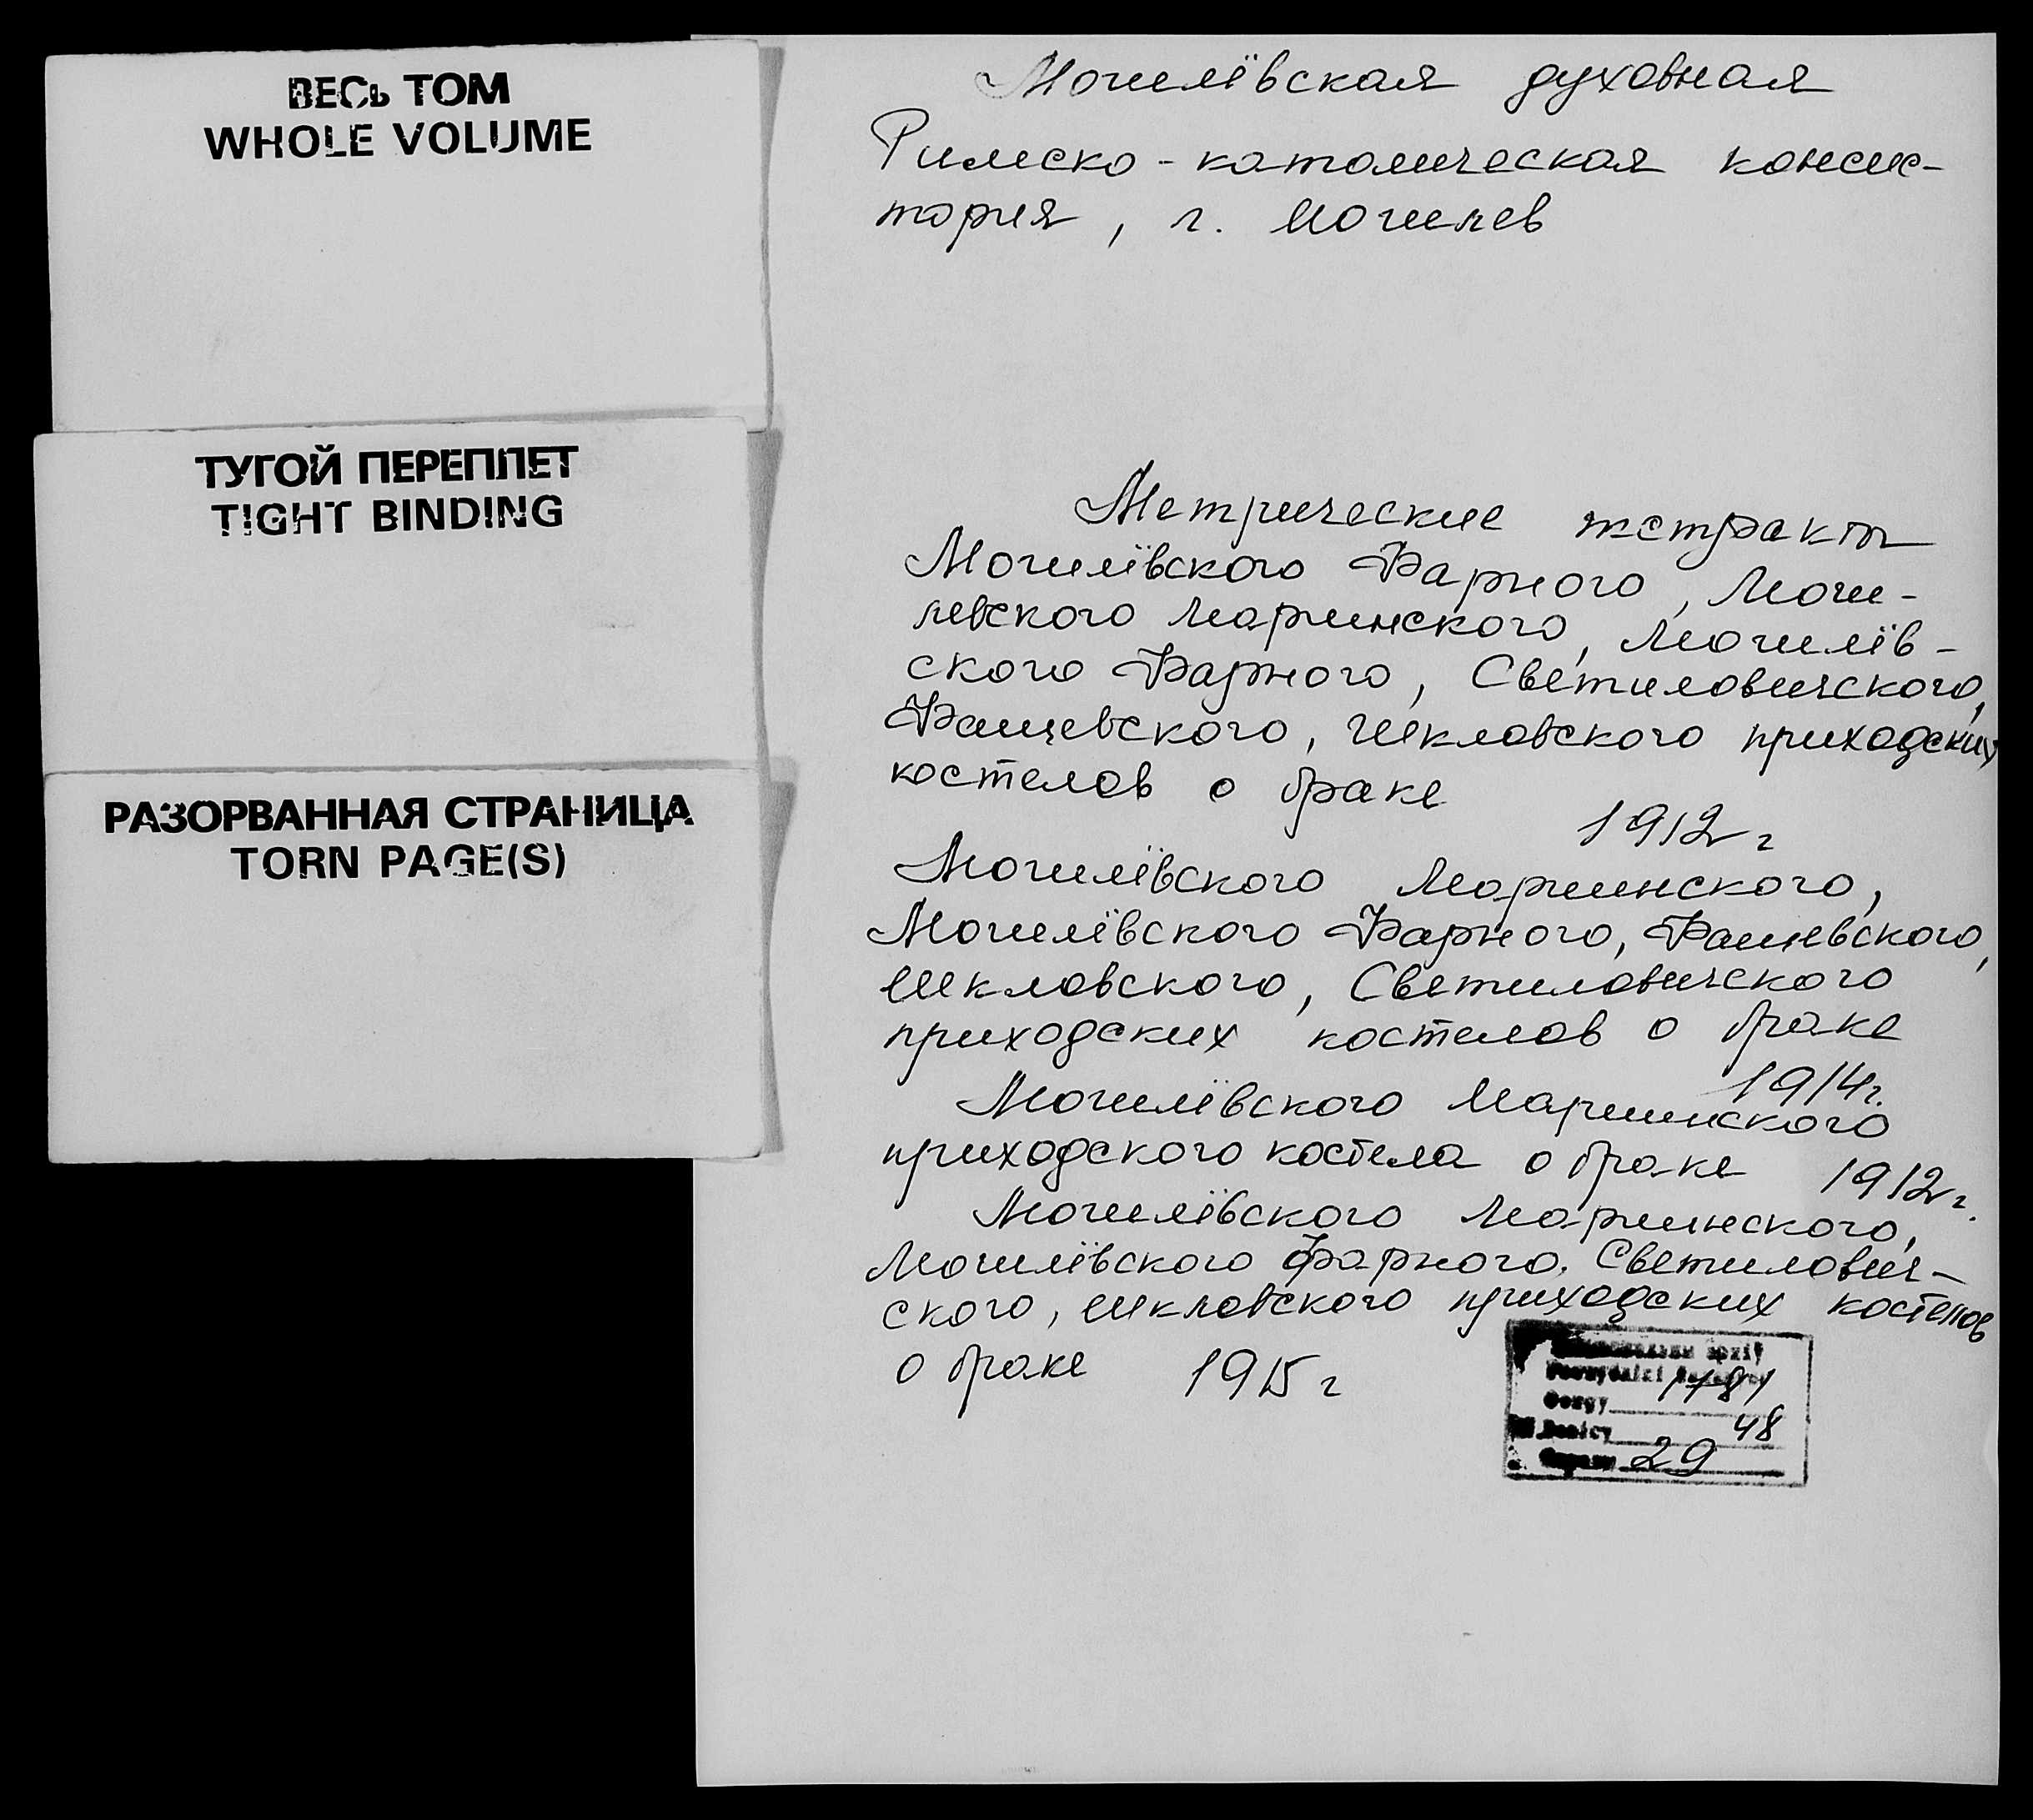 ВЕСЬ ТОМ
WHOLE VOLUME
ТУГОЙ ПЕРЕПЛЕТ
TIGHT BINDING
РАЗОРВАННАЯ СТРАНИЦА
TORN PAGE(S)
Могилёвская духовная
Римско-католическая консис-
тория, г. Могилев
Метрические экстракты
Могилёвского Фарного, Моги-
левского Мариинского, Могилёв-
ского Фарного, Светиловичского,
Фащевского, Шкловского приходских
костелов о браке
1912 г
Могилёвского Мариинского,
Могилёвского Фарного, Фащевского,
Шкловского, Светиловичского
приходских костелов о браке
1914 г.
Могилёвского Мариинского
приходского костела о браке 1912 г.
Могилёвского Мариинского,
Могилёвского Фарного, Светилович-
ского, Шкловского приходских костелов
о браке 1915 г
архіў
1781
48
29